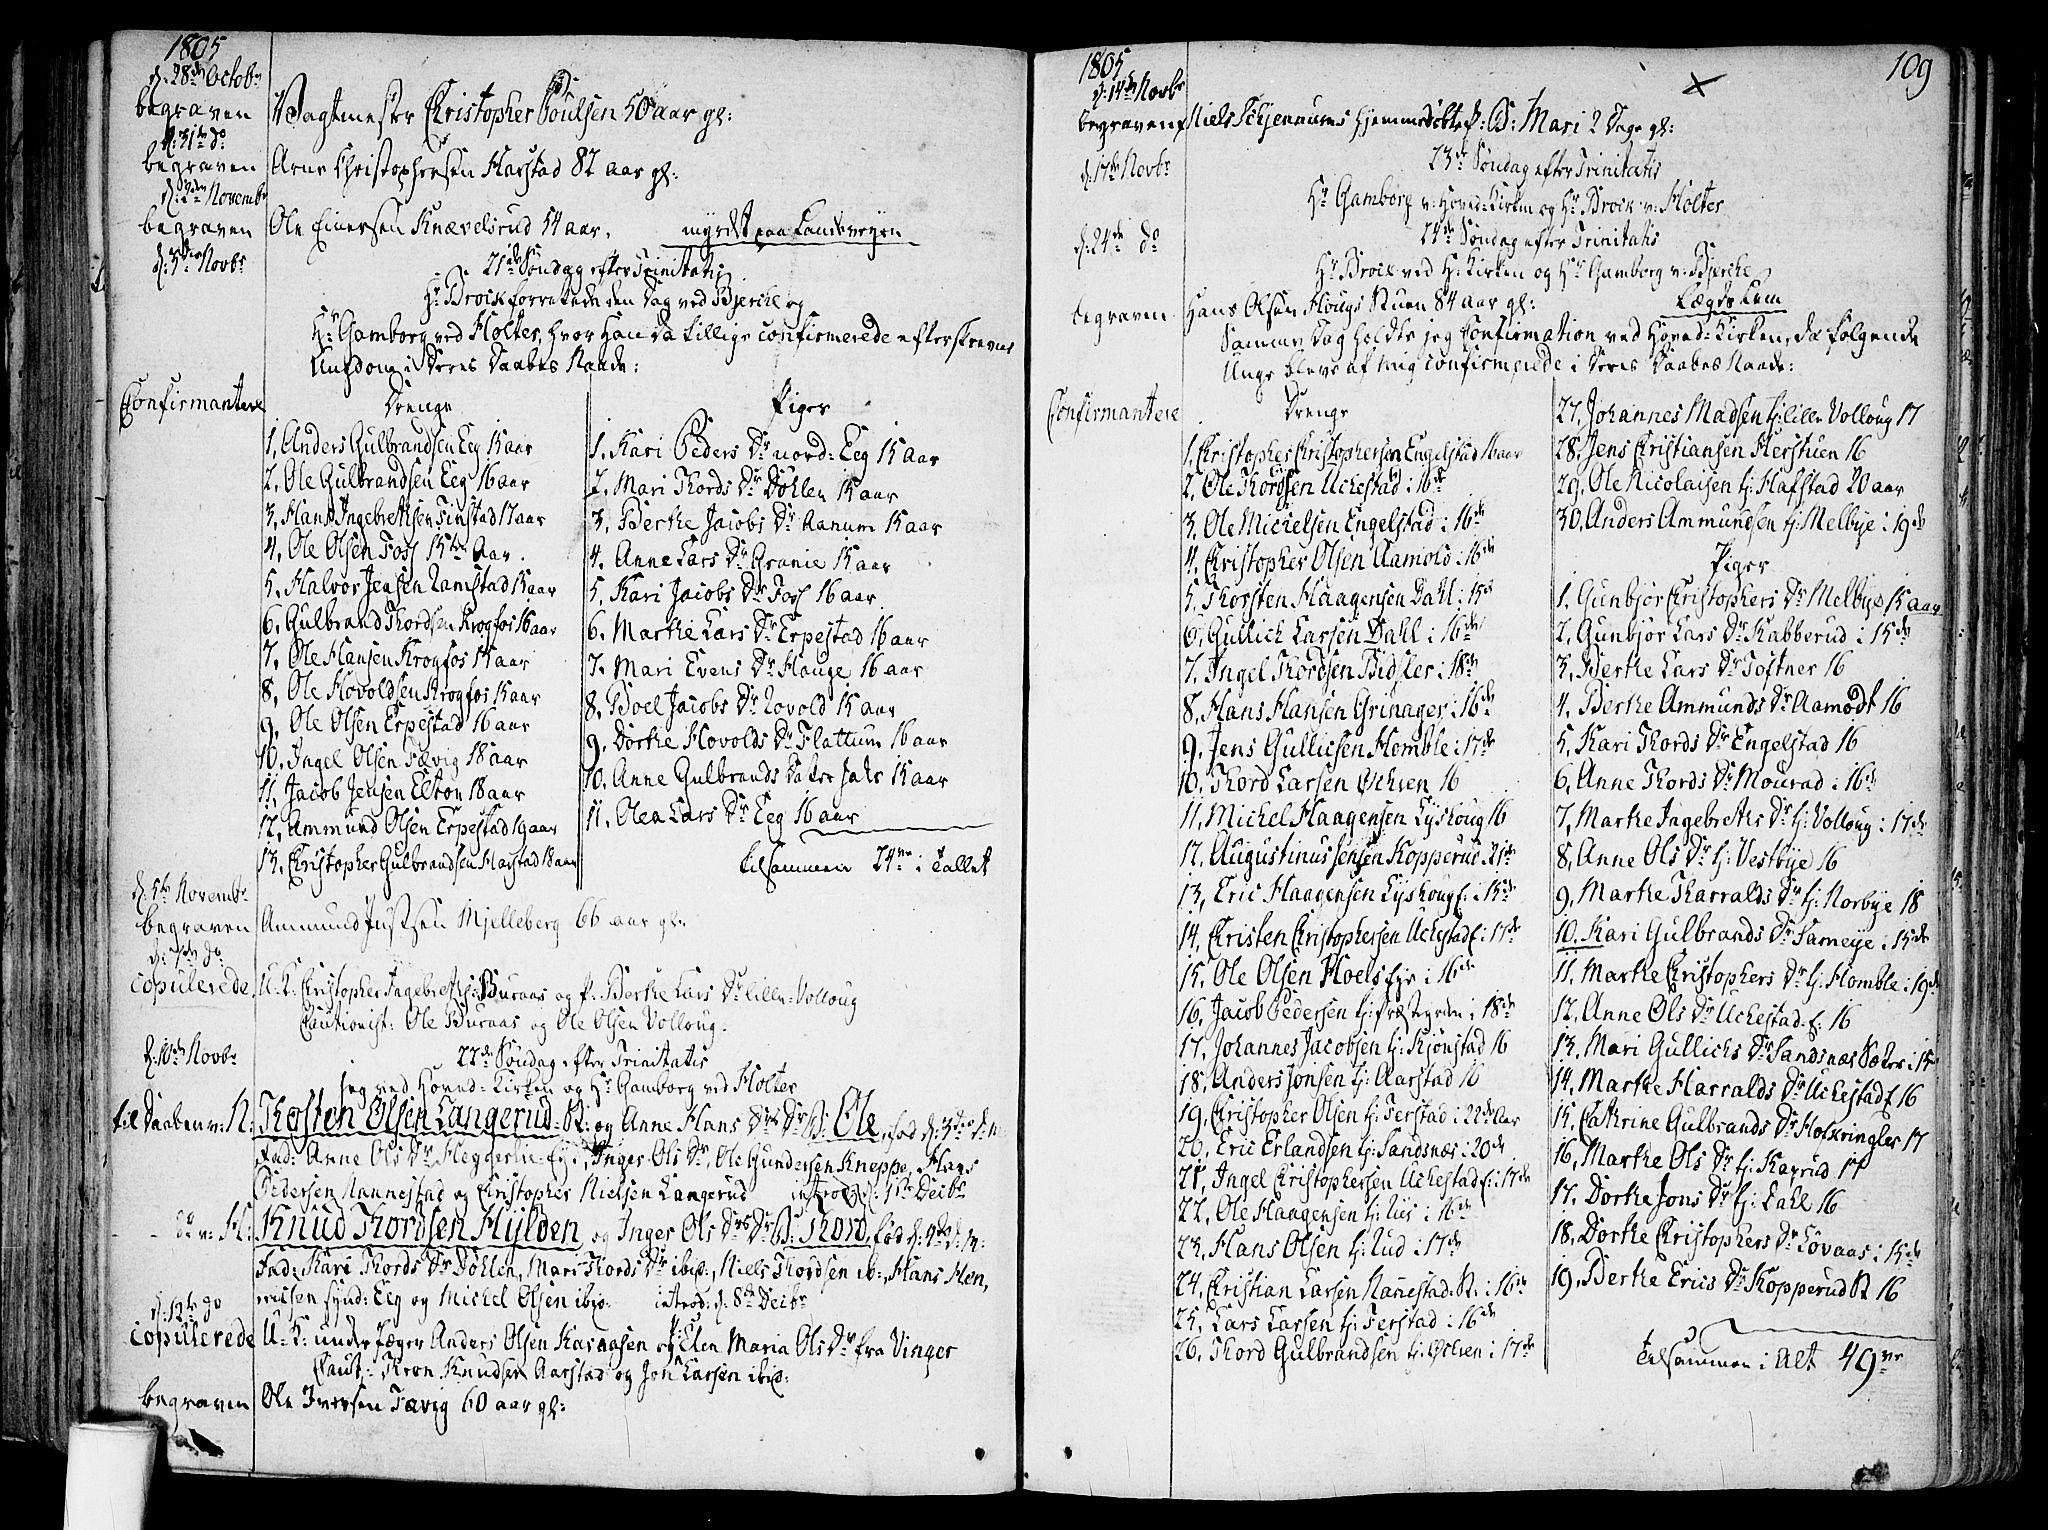 1805
d: 28de Octobr
begraven Vagtmester Christopher Poulsen 50 aar gl:
d: 31te do
begraven Arne Christophersen Harstad 82 aar gl:
d: 2den Novembr
begraven Ole Einersen Knævelsrud 54 aar, myrdt paa Landeveyen
d: 3die Novbr
21de Søndag efter Trinitatis
Hr Brock forrettede den Dag ved Bjercke og
Hr Gamborg ved Holter, hvor Han da tillige confirmerede efterskrevne
Ungdom i Deres Daabes Naade:
Confirmantere
Drenge
1, Anders Gulbrandsen Eeg 15 aar
2, Ole Gulbrandsen Eeg 16 aar
3, Hans Ingebrethsen Tinstad 17 aar
4, Ole Olsen Foss 15ten Aar
5, Halvor Jensen Ramstad 15 aar
6, Gulbrand Thordsen Krogfos 16 aar
7, Ole Hansen Krogfos 15 aar
8, Ole Hovoldsen Krogfos 15 aar
9, Ole Olsen Erpestad 16 aar
10, Ingel Olsen Tævig 18 aar
11, Jacob Jensen Elton 18 aar
12, Ammund Olsen Erpestad 19 aar
13, Christopher Gulbrandsen Harstad 18 aar
Piger
1, Kari Peders Dr nord: Eeg 15 aar
2, Mari Thords Dr Döhlen 15 aar
3, Berthe Jacobs Dr Aanum 15 aar
4, Anne Lars Dr Granie 15 aar
5, Kari Jacobs Dr Foss 16 aar
6, Marthe Lars Dr Erpestad 16 aar
7, Mari Evens Dr Hauge 16 aar
8, Boel Jacobs Dr Lovold 15 aar
9, Dorthe Hovolds Dr Flattum 16 aar
10, Anne Gulbrands Datter 15 aar
11, Olea Lars Dr Eeg 16 aar
tilsammen 24re i Tallet
d: 5te Novembr
begraven Ammund Mjelleberg 66 aar gl:
d: 7de do
copulerede U: K: Christopher Ingebrethsen Buraas og P: Berthe Lars Dr lille-Volloug
Cautionist: Ole Buraas og Ole Olsen Volloug.
d: 10de Novbr
22de Søndag efter Trinitatis
jeg ved Hoved-Kirken og Hr Gamborg ved Holter
til Daaben v: N: Thosten Olsen Langerud og Anne Hans Drs Dr B: Ole, fød d: 3die d: M:
Fad: Anne Ols Dr Inger Ols Dr, Ole Gundersen Kneppe, Hans
Pedersen Nannestad og Christopher Nielsen Langerud introd: d: 1ste Decbr
do v: H: Knud Thordsen Hylden og Inger Ols Drs Dr B: Thord, fød d: 4de d: M:
Fad: Kari Thords Dr Döhlen, Mari Thords Dr ibid:, Niels Thordsen ib:, Hans Hen,
ricsen synd: Eeg og Michel Olsen ibid: introd: d: 8de Decbr
d: 12te do
copulerede U: K: under Jæger Anders Olsen og P: Elen Maria Ols Dr fra Vinger
Caut: Knudsen Aarstad og Jon Larsen ibid:
begraven Ole Iversen Tævig 60 aar gl:
1805
109
d: 14de Novbr
begraven Niels hjemmedöbte P: B: Mari 2 Dage gl:
d: 17de Novbr
23de Søndag efter Trinitatis
Hr Gamborg v: Hoved-Kirken og Hr Brock v: Holter
d: 24de do
24de Søndag efter Trinitatis
Hr Brock ved H: Kirken og Hr Gamborg v: Bjercke
begraven Hans Olsen Hougs Stuen 84 aar gl: Lægds Lem
Samme Dag holdte jeg Confirmation ved Hoved-Kirken, da følgende
Unge bleve af mig confirmerede i Deres Daabes Naade:
Confirmantere
Drenge
1, Christopher Christophersen Engelstad 16 aar
2, Ole Thordsen Uchestad: 16de
3, Ole Michelsen Engelstad: 16de
4, Christopher Olsen Aamold: 16de
5, Thorsten Haagensen Dahl: 15de
6, Gullich Larsen Dahl: 16de
7, Ingel Thordsen Bidsler: 18de
8, Hans Hansen Grinager: 16de
9, Jens Gullicsen Homble: 17de
10, Thord Larsen Øchsen 16
11, Michel Haagensen Lyshoug 16
12, Augustinus Jensen Kopperud: 21de
13, Eric Haagensen Lyshoug f: i 15de
14, Christen Christophersen Uchestad f: 17de
15, Ole Olsen Hoels eye i 16de
16, Jacob Pedersen tj: præstegrden i 18de
17, Johannes Jacobsen tj: Kjönstad 16
18, Anders Jonsen tj: Aarstad 16
19, Christopher Olsen tj: Ferstad i 22de Aar
20, Eric Erlandsen tj: Sandsnæs: 20de
21, Ingel Christophersen Uchestad f: 17de
22, Ole Haagensen tj: Lies i 16de
23, Hans Olsen tj: Lud i 17de
24, Christian Larsen Nannestad: i 16de
25, Lars Larsen tj: Ferstad: 16de
26, Thord Gulbrandsen tj: Øchsen i 17de
27, Johannes Madsen tj: lille Volloug 17
28, Jens Christiansen Herstuen 16
29, Ole Nicolaisen tj: Hafstad 20 aar
30, Anders Ammundsen tj: Melbye: 19de
Piger
1, Gunbjør Christophers Dr Melbye 15 aar
2, Gunbjør Lars Dr Kabberud: 15de
3, Berthe Lars Dr Toftner 16
4, Berthe Ammunds Dr Aamodt 16
5, Kari Thords Dr Engelstad 16
6, Anne Thords Dr Mourad: 16de
7, Marthe Ingebreths Dr tj: Volloug: 17de
8, Anne Ols Dr tj: Vestbye 16
9, Marthe Tharralds Dr tj: Norbye 18
10, Kari Gulbrands Dr Sameye: 15de
11, Marthe Christophers Dr tj: Homble: 19de
12, Anne Ols Dr Uchestad f: 16
13, Mari Gullichs Dr Sandsnæs 15
14, Marthe Harralds Dr Uchestad f 16
15, Cathrine Gulbrands Dr Holxringler 17
16, Marthe Ols Dr tj: Kaxrud 17
17, Dorthe Jons Dr tj: Dahl 16
18, Dorthe Christophers Dr Lövaas: 15de
19, Berthe Erics Dr Kopperud 16
Tilsammen i Alt 49re